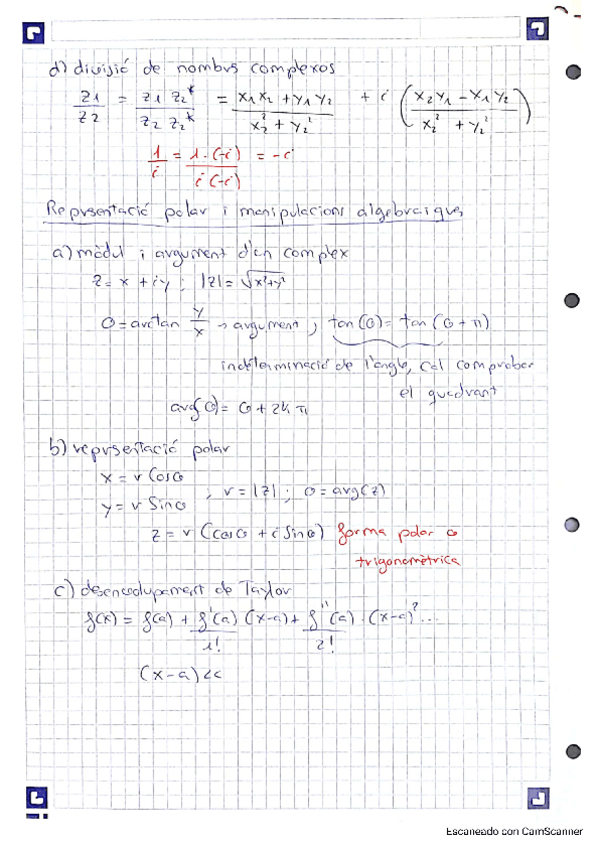 d) divisió de nombrs complexos
z1/z2 = z1 z2*/z2 z2* = x1x2 + y1y2/x2² + y2² + i (x2y1 - x1y2/x2² + y2²)
1/i = 1·(-i)/i(-i) = -i
Reprsentació polar i manipulacions algebraiques
a) mòdul i argument d'un complex
z = x + iy ; |z| = √x²+y²
θ = arctan y/x → argument ; tan(θ) = tan(θ + π)
indeterminació de l'angle, cal comprobar
el quadrant
arg(θ) = θ + 2kπ
b) reprsentació polar
x = r cosθ
y = r sinθ ; r = |z| ; θ = arg(z)
z = r (cosθ + i sinθ) forma polar o
trigonomètrica
c) desenvolupament de Taylor
f(x) = f(a) + f'(a)/1! (x-a) + f''(a)/2! · (x-a)² ...
(x-a) <<
Escaneado con CamScanner